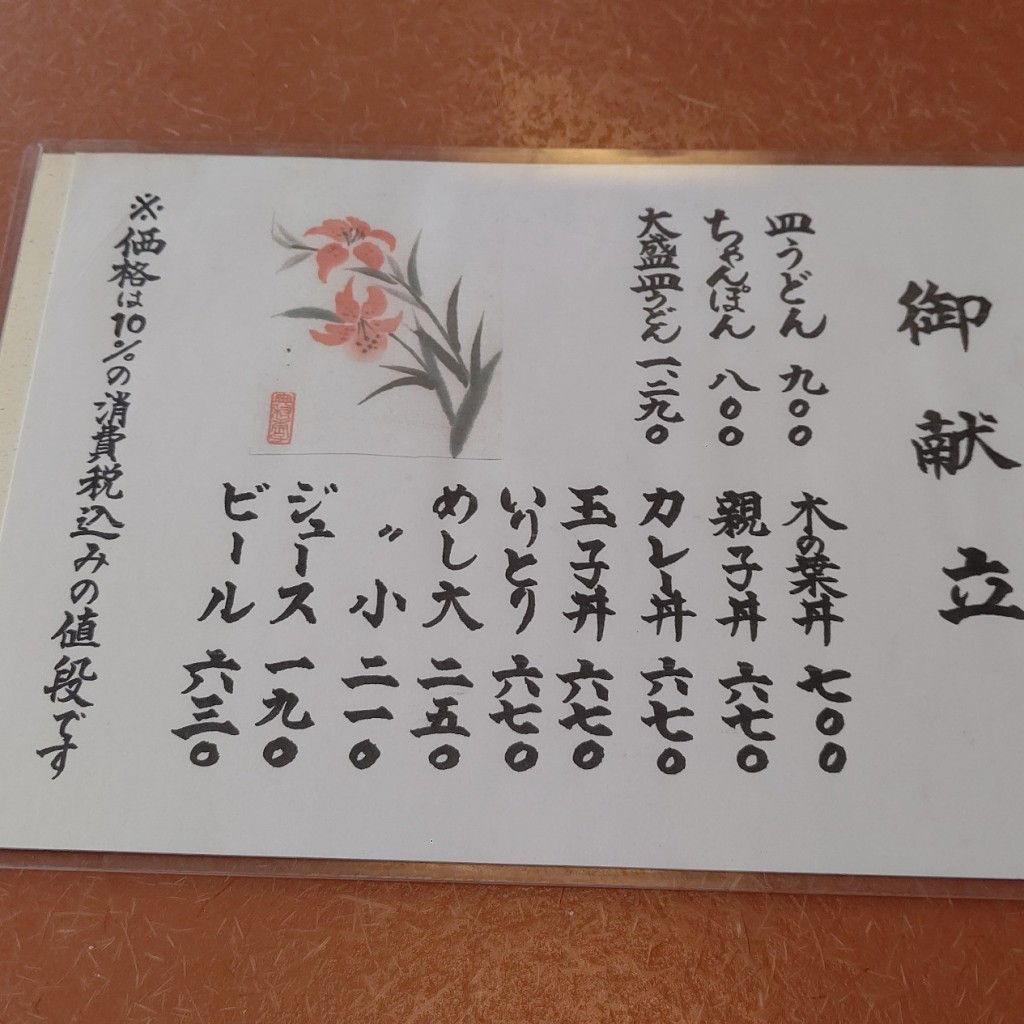 御献立
皿うどん 九〇〇
ちゃんぽん 八〇〇
大盛皿うどん 一、二九〇
木の葉丼 七〇〇
親子丼 六七〇
カレー丼 六七〇
玉子丼 六七〇
いりとり 六七〇
めし大 二五〇
〃小 二一〇
ジュース 一九〇
ビール 六三〇
※価格は10%の消費税込みの値段です